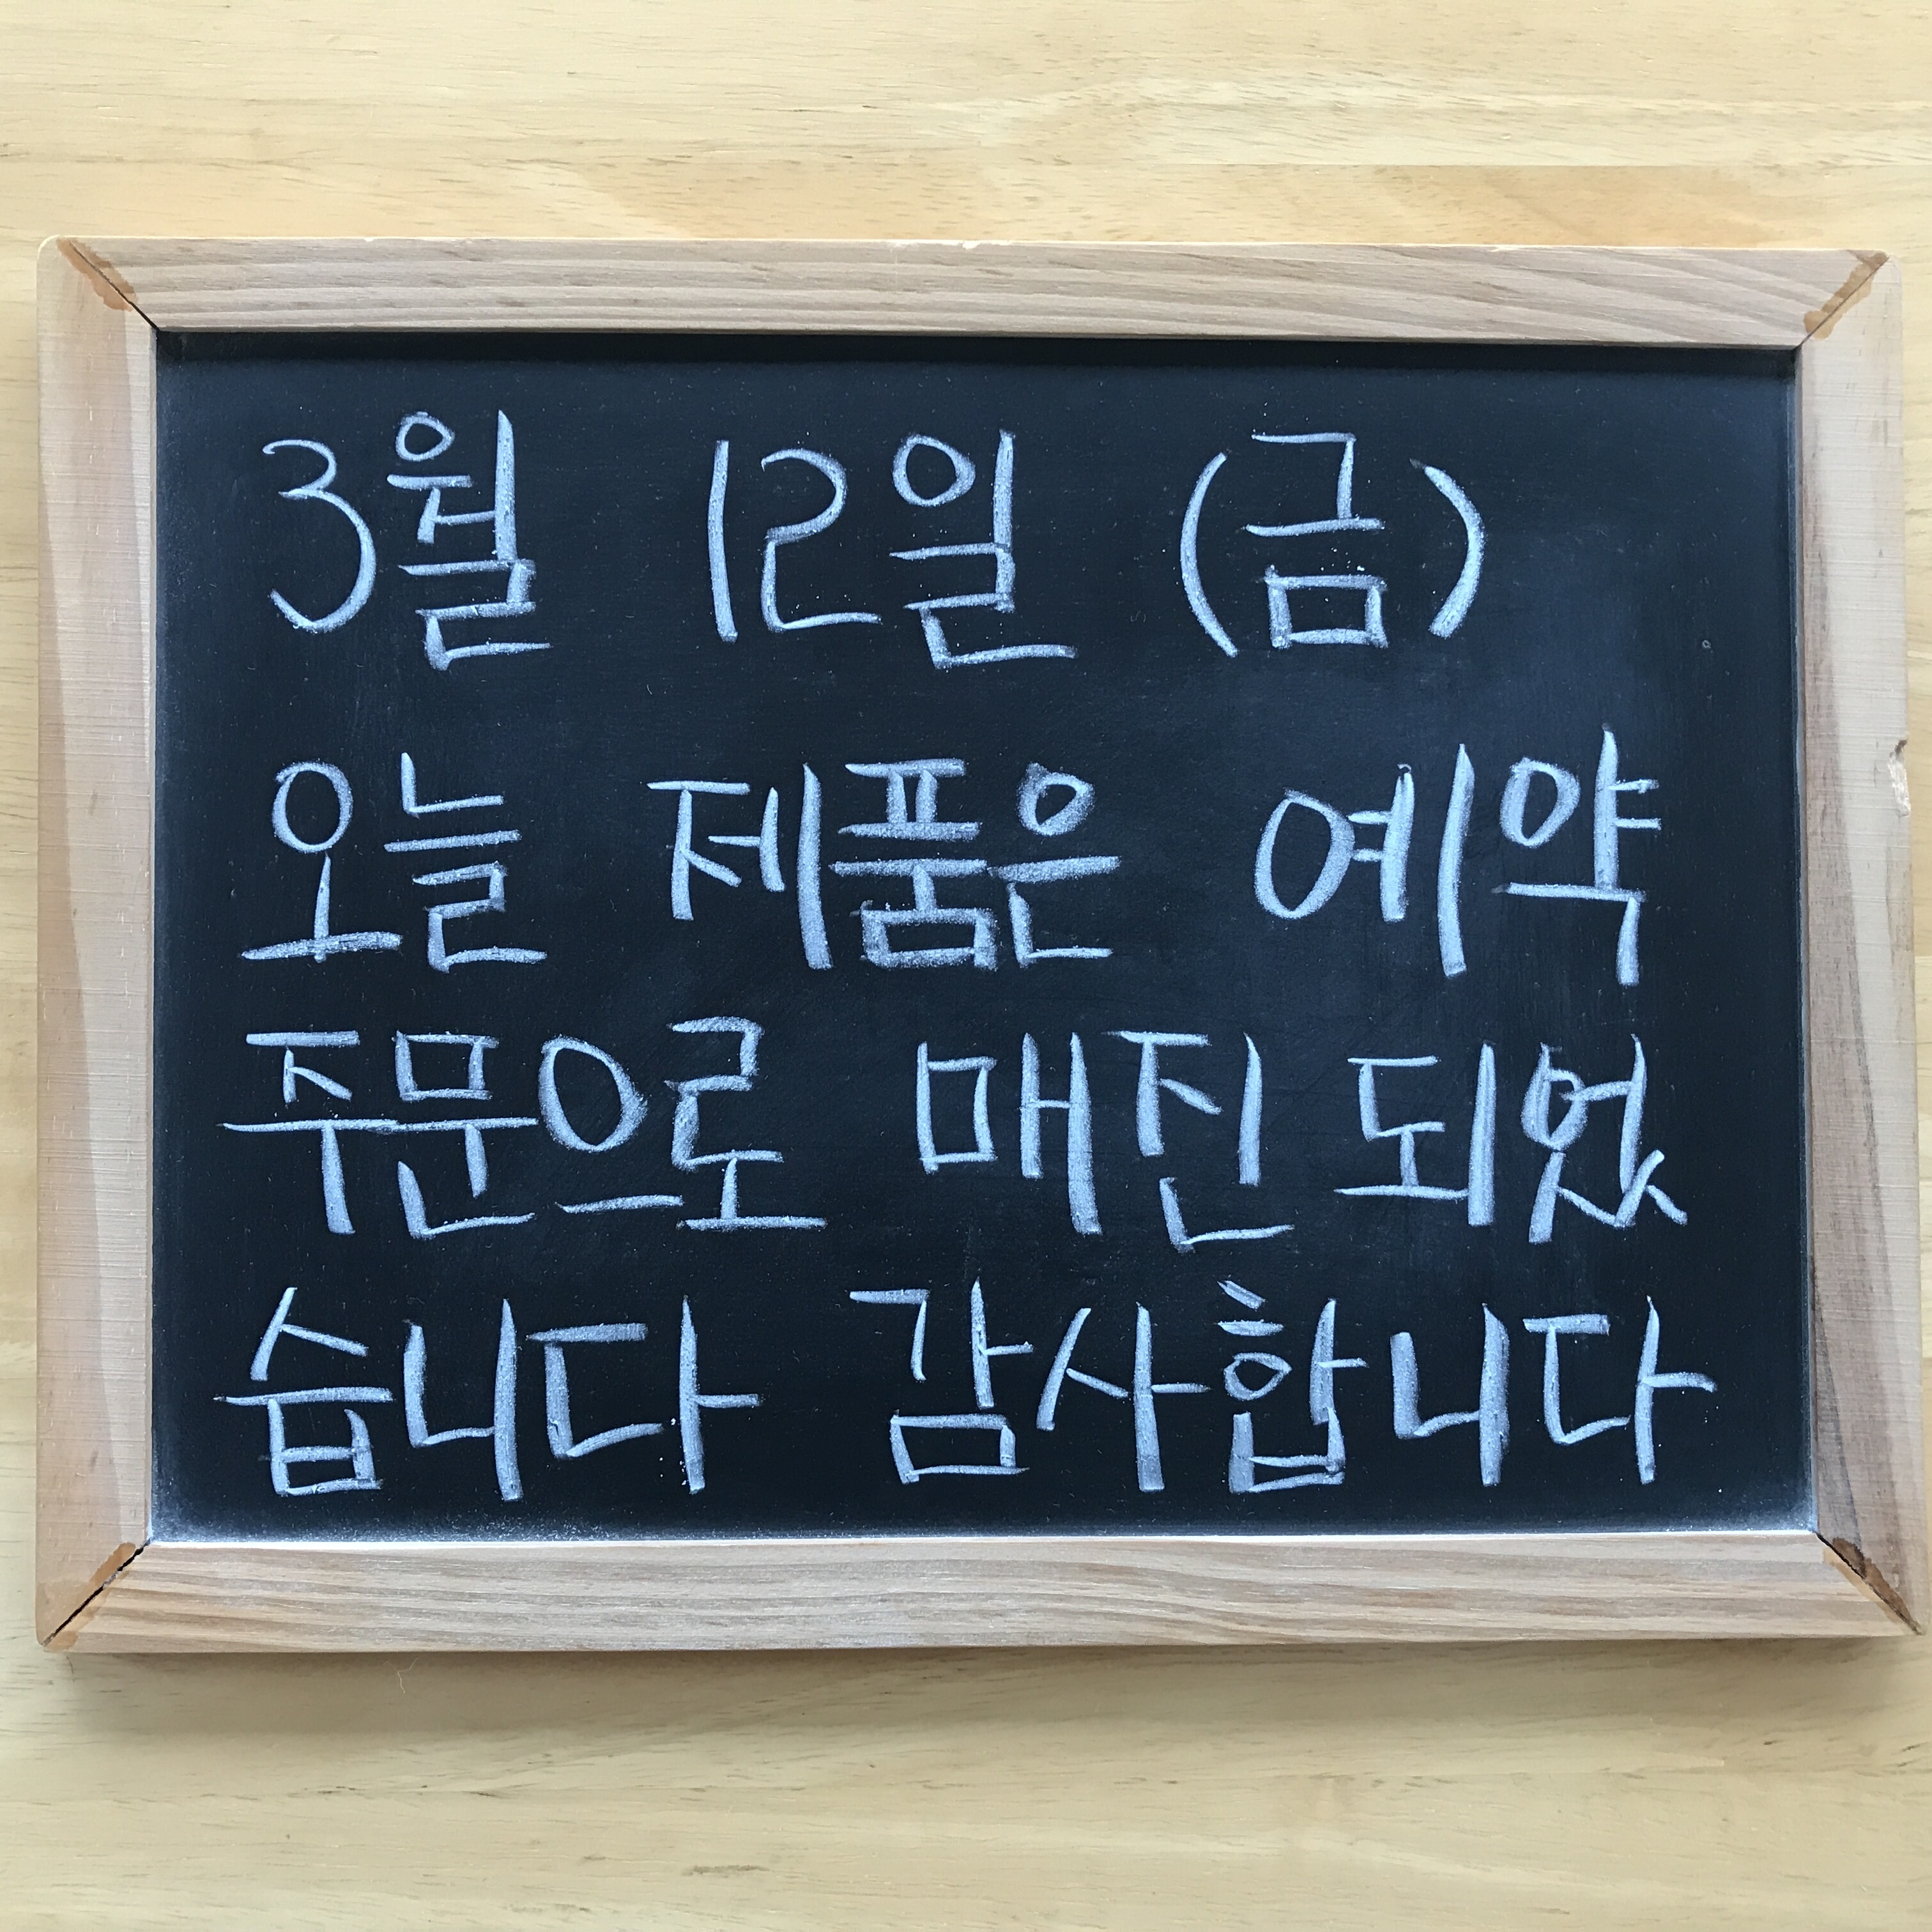 3월 12일 (금)
오늘 제품은 예약
주문으로 매진 되었
습니다 감사합니다